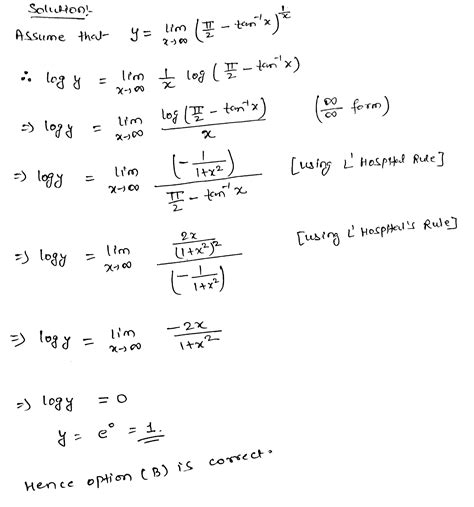 Solution:-
Assume that y = lim x→∞ (π/2 - tan⁻¹x)^(1/x)
∴ log y = lim x→∞ 1/x log (π/2 - tan⁻¹x)
⇒ log y = lim x→∞ log (π/2 - tan⁻¹x) / x (∞/∞ form)
⇒ log y = lim x→∞ (-1/(1+x²)) / (π/2 - tan⁻¹x) [using L' Hospital Rule]
⇒ log y = lim x→∞ (2x/(1+x²)²) / (-1/(1+x²)) [using L' Hospital's Rule]
⇒ log y = lim x→∞ -2x/(1+x²)
⇒ log y = 0
y = e⁰ = 1.
Hence option (B) is correct.